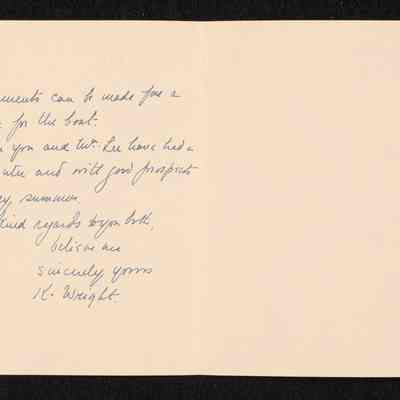 ments can be made for a
for the boat.
you and Mr. Lee have had a
and with good prospects
summer.
kind regards to you both,
believe me
sincerely yours
K. Wright.